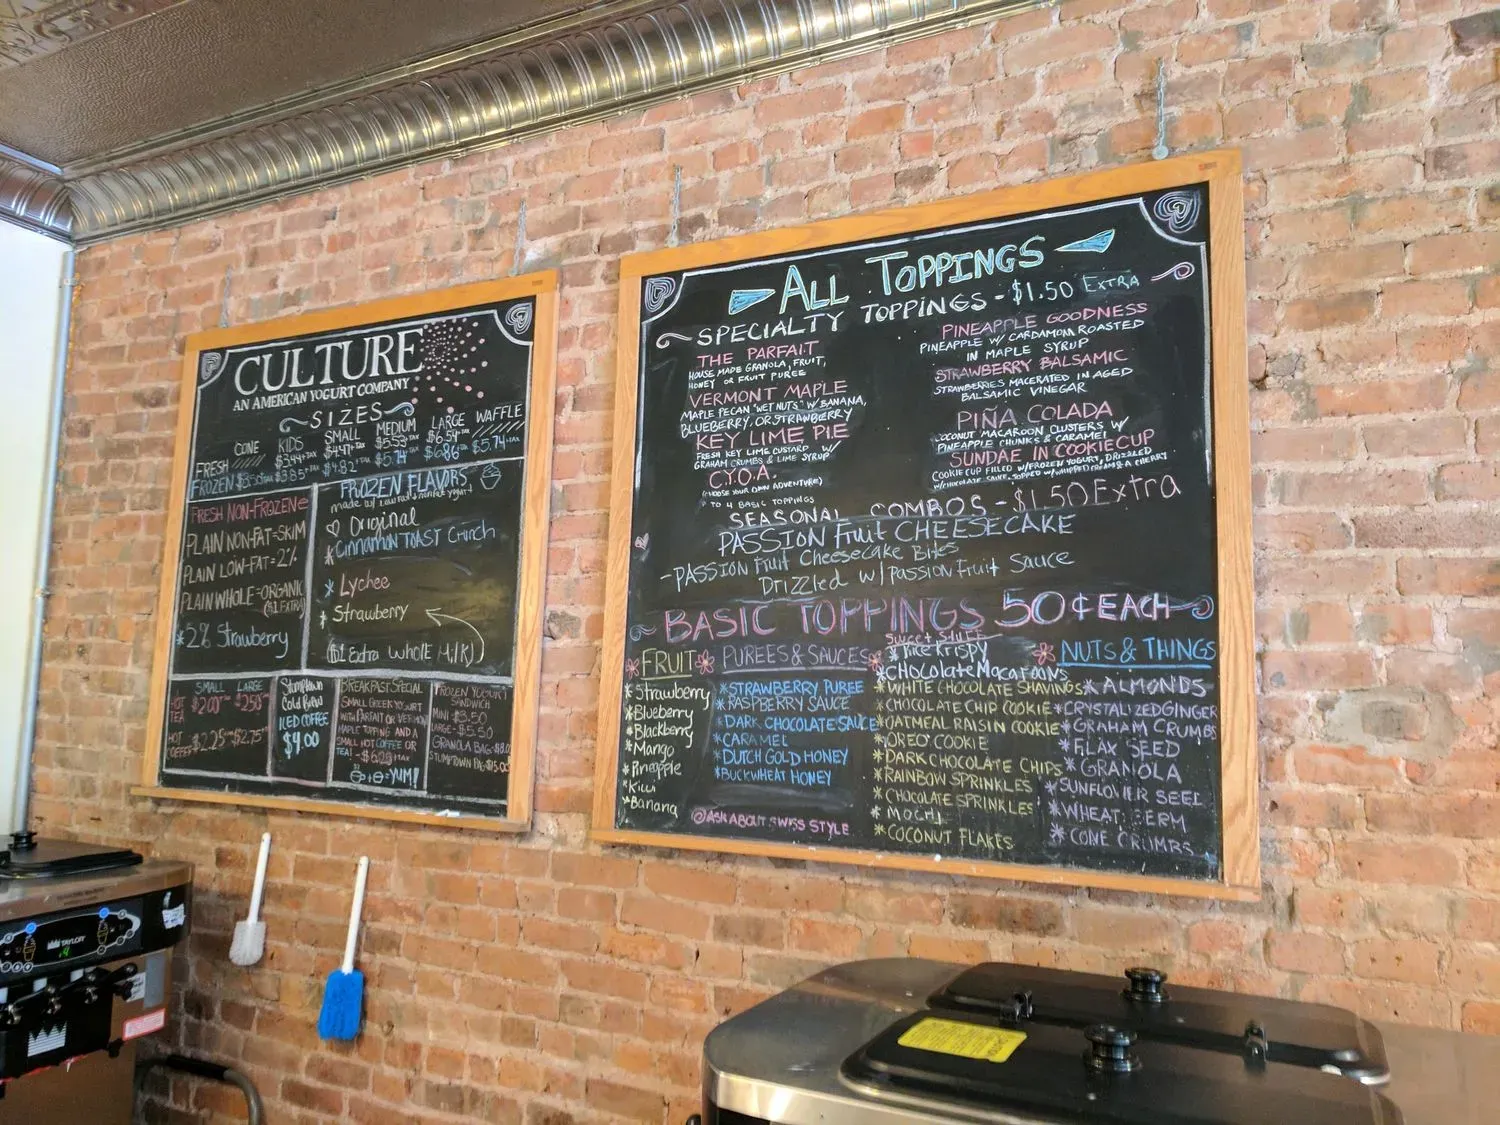 CULTURE
AN AMERICAN YOGURT COMPANY
SIZES
CONE KIDS SMALL MEDIUM LARGE WAFFLE
FRESH $3.44+TAX $4.47+TAX $5.53+TAX $6.54+TAX
FROZEN $3.85+TAX $4.82+TAX $5.74+TAX $6.86+TAX $5.74+TAX
FRESH NON-FROZEN
PLAIN NON-FAT=SKIM
PLAIN LOW-FAT=2%
PLAIN WHOLE=ORGANIC
($1 EXTRA)
*2% Strawberry
FROZEN FLAVORS
made w/ Low Fat + nonfat yogurt
Original
*Cinnamon TOAST Crunch
* Lychee
* Strawberry
($1 Extra WHOLE MILK)
SMALL LARGE
HOT TEA $2.00 $2.50
HOT COFFEE $2.25 $2.75
Stumptown
Cold Brew
ICED COFFEE
$4.00
BREAKFAST SPECIAL
SMALL GREEK YOGURT
WITH PARFAIT OR VERMONT
MAPLE TOPPING AND A
SMALL HOT COFFEE OR
TEA!
=YUM!
FROZEN YOGURT
SANDWICH
MINI -$3.50
LARGE -$5.50
GRANOLA BAG-$8.00
STUMPTOWN BAG-$15.00
ALL TOPPINGS
SPECIALTY TOPPINGS - $1.50 EXTRA
THE PARFAIT
HOUSE MADE GRANOLA, FRUIT,
HONEY OR FRUIT PUREE
VERMONT MAPLE
MAPLE PECAN "WET NUTS" W/ BANANA,
BLUEBERRY, OR STRAWBERRY
KEY LIME PIE
FRESH KEY LIME CUSTARD W/
GRAHAM CRUMBS & LIME SYRUP
C.Y.O.A.
(CHOOSE YOUR OWN ADVENTURE)
UP TO 4 BASIC TOPPINGS
PINEAPPLE GOODNESS
PINEAPPLE W/ CARDAMOM ROASTED
IN MAPLE SYRUP
STRAWBERRY BALSAMIC
STRAWBERRIES MACERATED IN AGED
BALSAMIC VINEGAR
PIÑA COLADA
COCONUT MACAROON CLUSTERS W/
PINEAPPLE CHUNKS & CARAMEL
SUNDAE IN COOKIE CUP
COOKIE CUP FILLED W/ FROZEN YOGURT, DRIZZLED
W/CHOCOLATE SAUCE, TOPPED W/WHIPPED CREAM & A CHERRY
SEASONAL COMBOS - $1.50 Extra
PASSION Fruit CHEESECAKE
-PASSION Fruit Cheesecake Bites
Drizzled w/ Passion Fruit Sauce
BASIC TOPPINGS 50¢ EACH
FRUIT
*Strawberry
*Blueberry
*Blackberry
*Mango
*Pineapple
*Kiwi
*Banana
PUREES & SAUCES
*STRAWBERRY PUREE
*RASPBERRY SAUCE
*DARK CHOCOLATE SAUCE
*CARAMEL
*DUTCH GOLD HONEY
*BUCKWHEAT HONEY
@ASK ABOUT SWISS STYLE
Sweet Stuff
*Rice Krispy
*CHOCOLATE MACAROONS
*WHITE CHOCOLATE SHAVINGS
*CHOCOLATE CHIP COOKIE
*OATMEAL RAISIN COOKIE
*OREO COOKIE
*DARK CHOCOLATE CHIPS
*RAINBOW SPRINKLES
*CHOCOLATE SPRINKLES
*MOCHI
*COCONUT FLAKES
NUTS & THINGS
*ALMONDS
*CRYSTALIZED GINGER
*GRAHAM CRUMBS
*FLAX SEED
*GRANOLA
*SUNFLOWER SEED
*WHEAT GERM
*CONE CRUMBS
TAYLOR